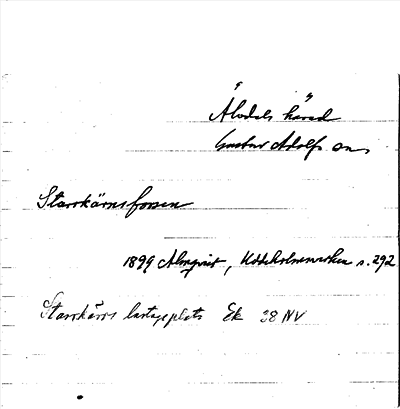 Älvdals härad
Gustav Adolfs sn
Starrkärnsforsen
1899 Almqvist, s. 292
Starrkärrs lastageplats Ek 38 NV